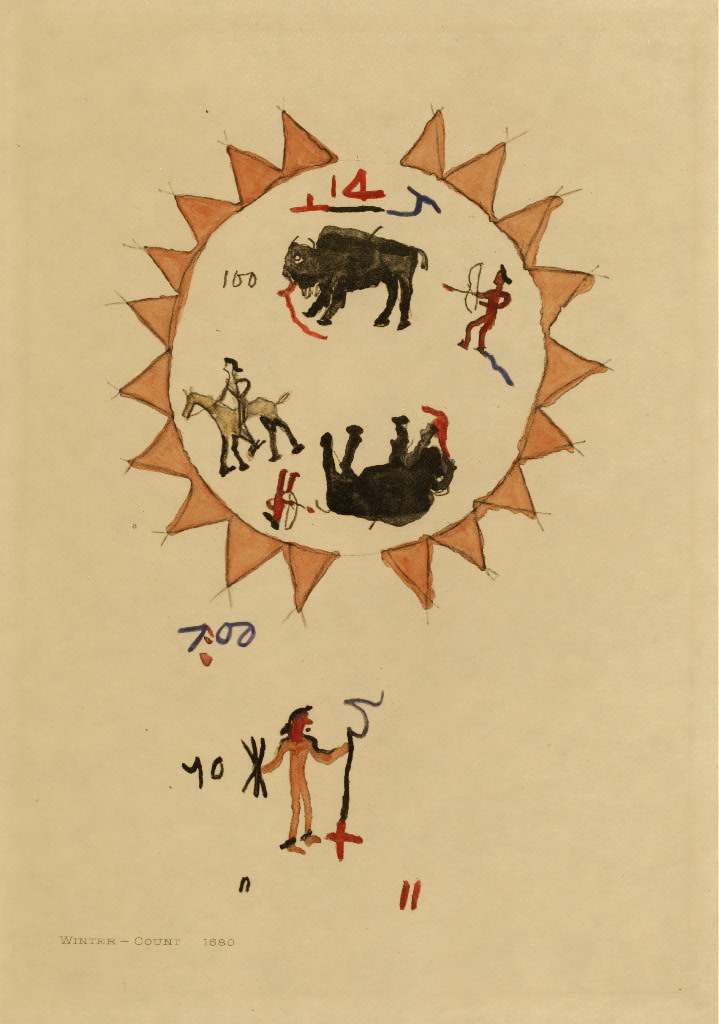 14
100
700
40
n
11
WINTER – COUNT 1680